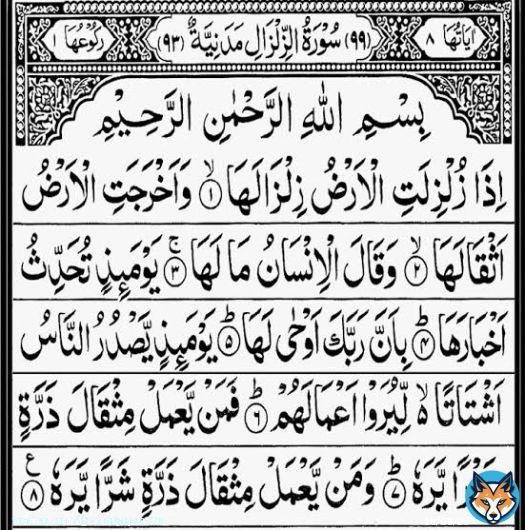 اٰيَاتُهَا ٨ (٩٩) سُوْرَةُ الزِّلْزَالِ مَدَنِيَّةٌ (٩٣) رُكُوْعُهَا ١
بِسْمِ اللهِ الرَّحْمٰنِ الرَّحِيْمِ
اِذَا زُلْزِلَتِ الْاَرْضُ زِلْزَالَهَا ۙ﴿١﴾ وَاَخْرَجَتِ الْاَرْضُ
اَثْقَالَهَا ۙ﴿٢﴾ وَقَالَ الْاِنْسَانُ مَا لَهَا ۚ﴿٣﴾ يَوْمَىِٕذٍ تُحَدِّثُ
اَخْبَارَهَا ؕ﴿٤﴾ بِاَنَّ رَبَّكَ اَوْحٰى لَهَا ؕ﴿٥﴾ يَوْمَىِٕذٍ يَّصْدُرُ النَّاسُ
اَشْتَاتًا ۙ۬ لِّيُرَوْا اَعْمَالَهُمْ ؕ﴿٦﴾ فَمَنْ يَّعْمَلْ مِثْقَالَ ذَرَّةٍ
خَيْرًا يَّرَهٗ ؕ﴿٧﴾ وَمَنْ يَّعْمَلْ مِثْقَالَ ذَرَّةٍ شَرًّا يَّرَهٗ ﴿٨﴾ ع